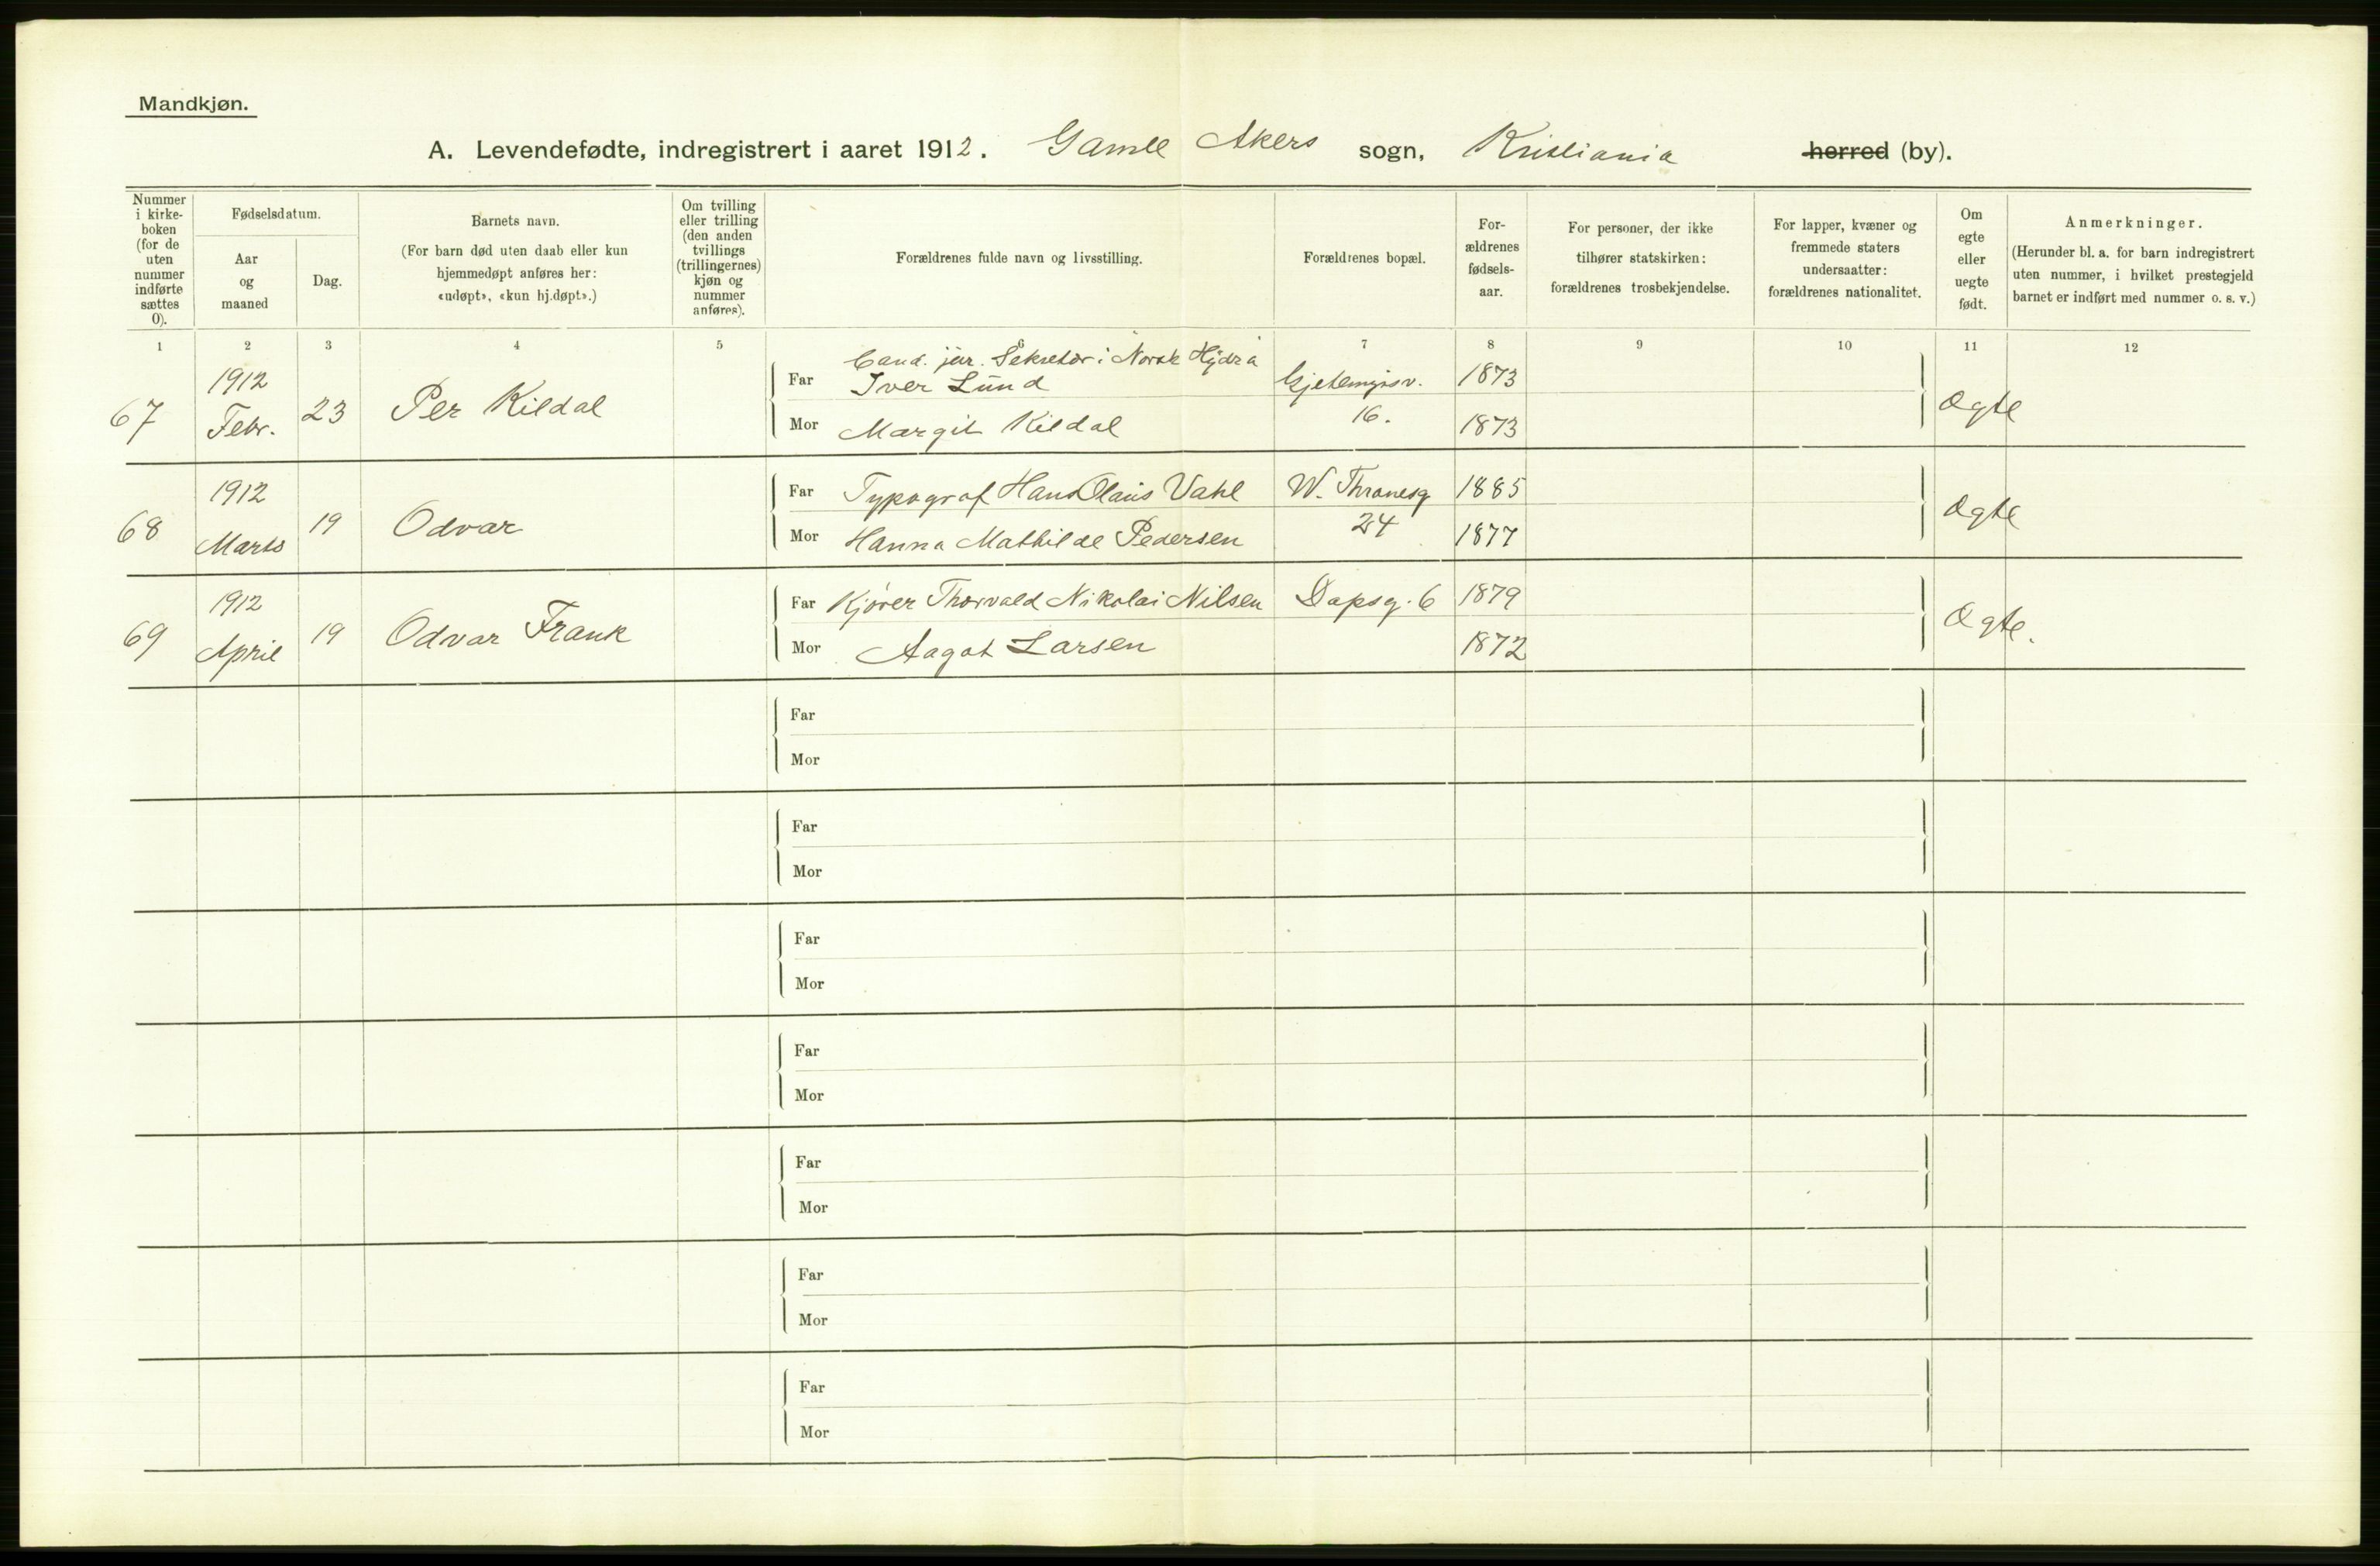 Mandkjøn.
A. Levendefødte, indregistrert i aaret 1912. Gamle Akers sogn, Kristiania herred (by).
Nummer i kirke- boken (for de uten nummer indførte sættes 0).
Fødselsdatum.
Aar og maaned
Dag.
Barnets navn.
(For barn død uten daab eller kun hjemmedøpt anføres her: «udøpt», «kun hj.døpt».)
Om tvilling eller trilling (den anden tvillings (trillingernes) kjøn og nummer anføres).
Forældrenes fulde navn og livsstilling.
Forældrenes bopæl.
For- ældrenes fødsels- aar.
For personer, der ikke tilhører statskirken: forældrenes trosbekjendelse.
For lapper, kvæner og fremmede staters undersaatter: forældrenes nationalitet.
Om egte eller uegte født.
Anmerkninger.
(Herunder bl. a. for barn indregistrert uten nummer, i hvilket prestegjeld barnet er indført med nummer o. s. v.)
1 2 3 4 5 7 8 9 10 11 12
67 1912 Febr. 23 Per Kildal
Far Cand. jur. Sekretær i Norsk Hydro Iver Lund 16. 1873
Mor Margit Kildal 1873
Ægte
68 1912 Marts 19 Odvar
Far Typograf Hans Olaus Vahl W. Thranesg 24 1885
Mor Hanna Mathilde Pedersen 1877
Ægte
69 1912 April 19 Odvar Frank
Far Kjører Thorvald Nikolai Nilsen Dapsg. 6 1879
Mor Aagot Larsen 1872
Ægte.
Far
Mor
Far
Mor
Far
Mor
Far
Mor
Far
Mor
Far
Mor
Far
Mor